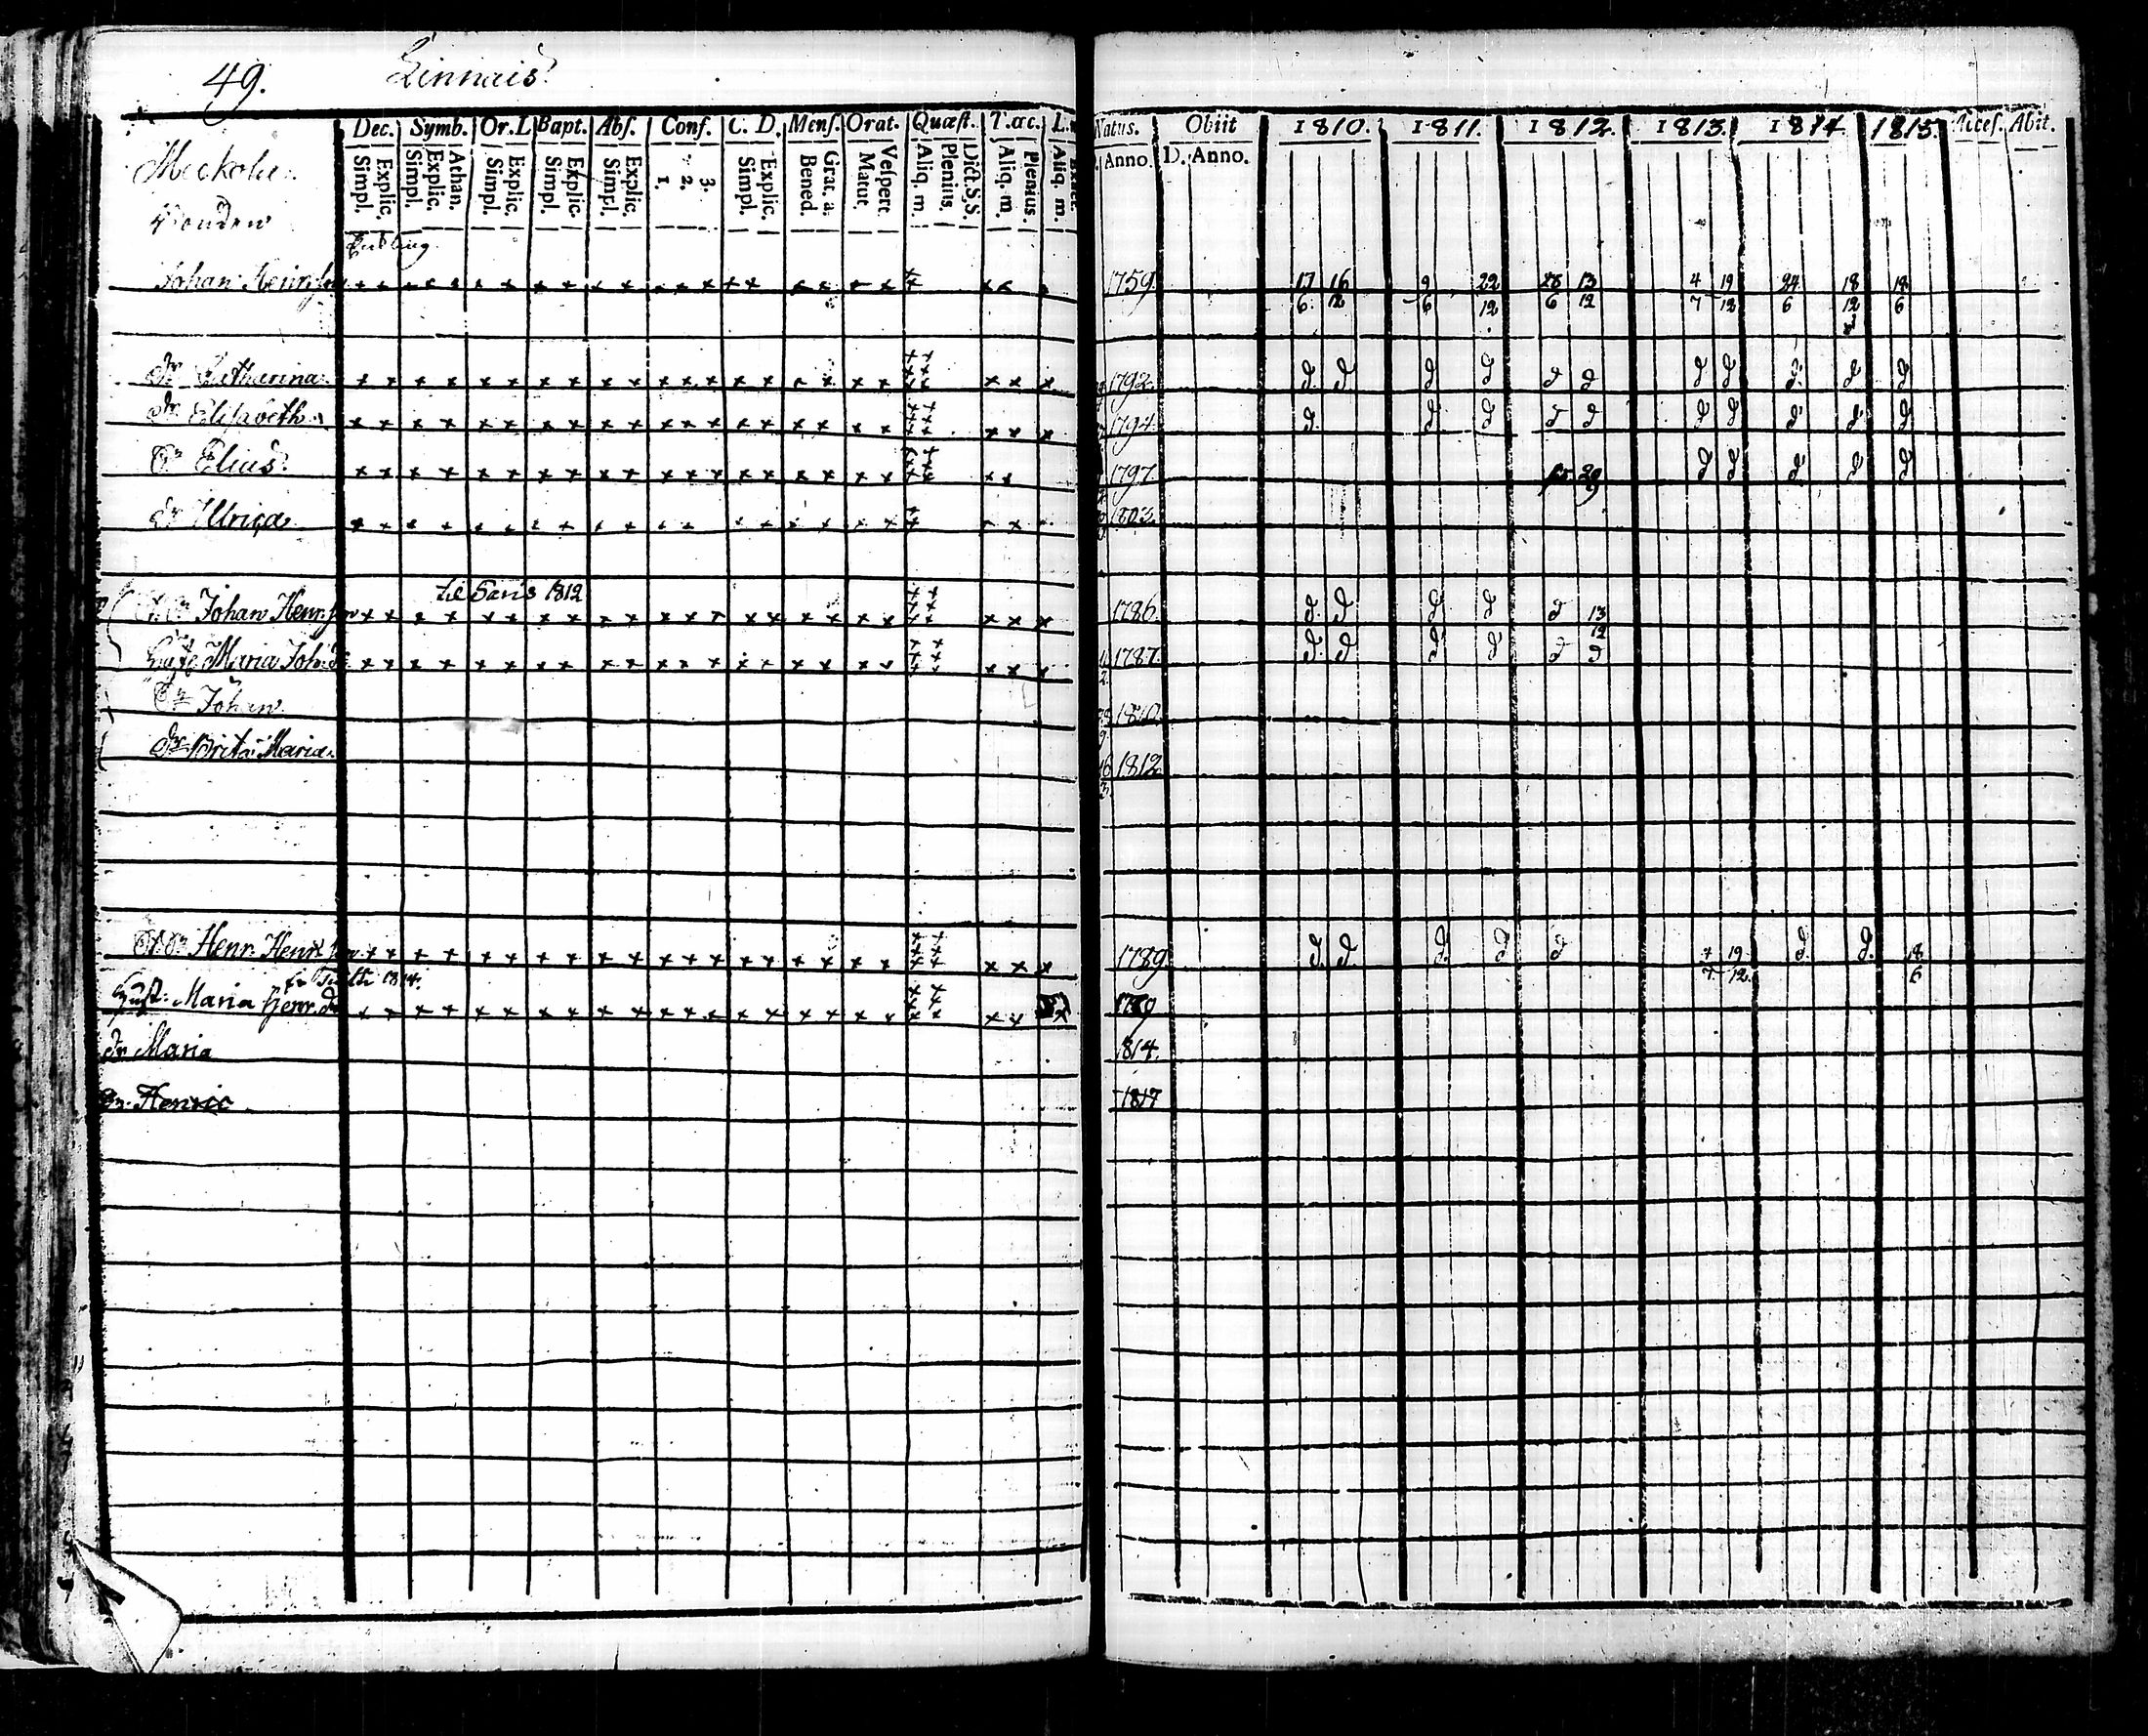 49. Linnais
Dec. Symb. Or.D Bapt. Abs. Conf. C. D. Mens. Orat. Quæst. T.œc. L.
Simpl. Explic. Simpl. Explic. Athan. Simpl. Explic. Simpl. Explic. Simpl. Explic. 1. 2. 3. Simpl. Explic. Bened. Grat. a. Matut. Vespert. Aliq. m. Plenius. Dict. S.S. Aliq. m. Plenius. Aliq. m.
Natus. Obiit 1810. 1811. 1812. 1813. 1814 1815 Acces. Abit.
Anno. D. Anno.
Meckola
Bonden
Johan Henrsson 1759 17 16 9 22 28 13 4 19 24 18 18
6 12 6 12 6 12 7 12 6 12 6
Dr Catharina 1792 d d d d d d d d d d d
Dr Elisabeth 1794 d d d d d d d d d d
Sn Elias 1797 29 d d d d d
Dr Ulrica 1803
til Saris 1812
Johan Henr.son 1786 d d d d d 13
12
Hust Maria Joh.dr 1787 d d d d d d
Sn Johan 1810
Dr Brita Maria 1812
Henr. Henr.son 1789 d d d d d 4 19 d d 18
7 12 6
1814.
Hust: Maria Henr.dr 1789
Dr Maria 1814.
Sn. Henric 1817